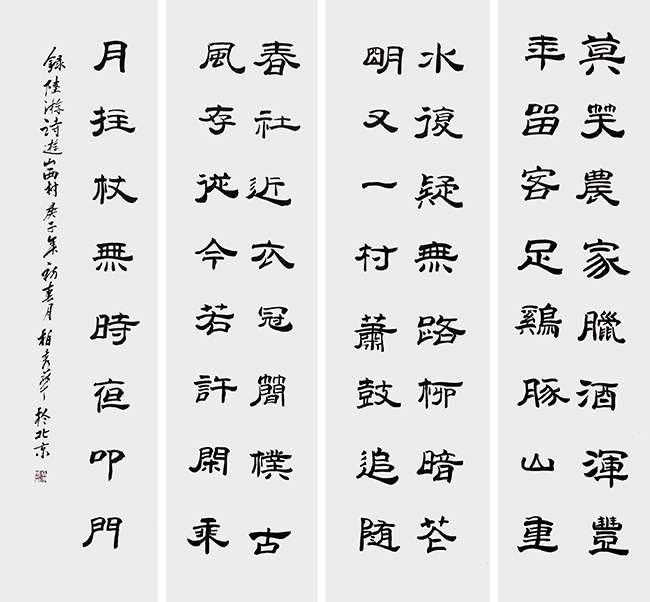 莫笑農家臘酒渾豐
年留客足鷄豚山重
水復疑無路柳暗花
明又一村蕭鼓追随
春社近衣冠簡樸古
風存從今若許閑乘
月拄杖無時夜叩門
録陸游詩遊山西村庚子年初春月柏於北京